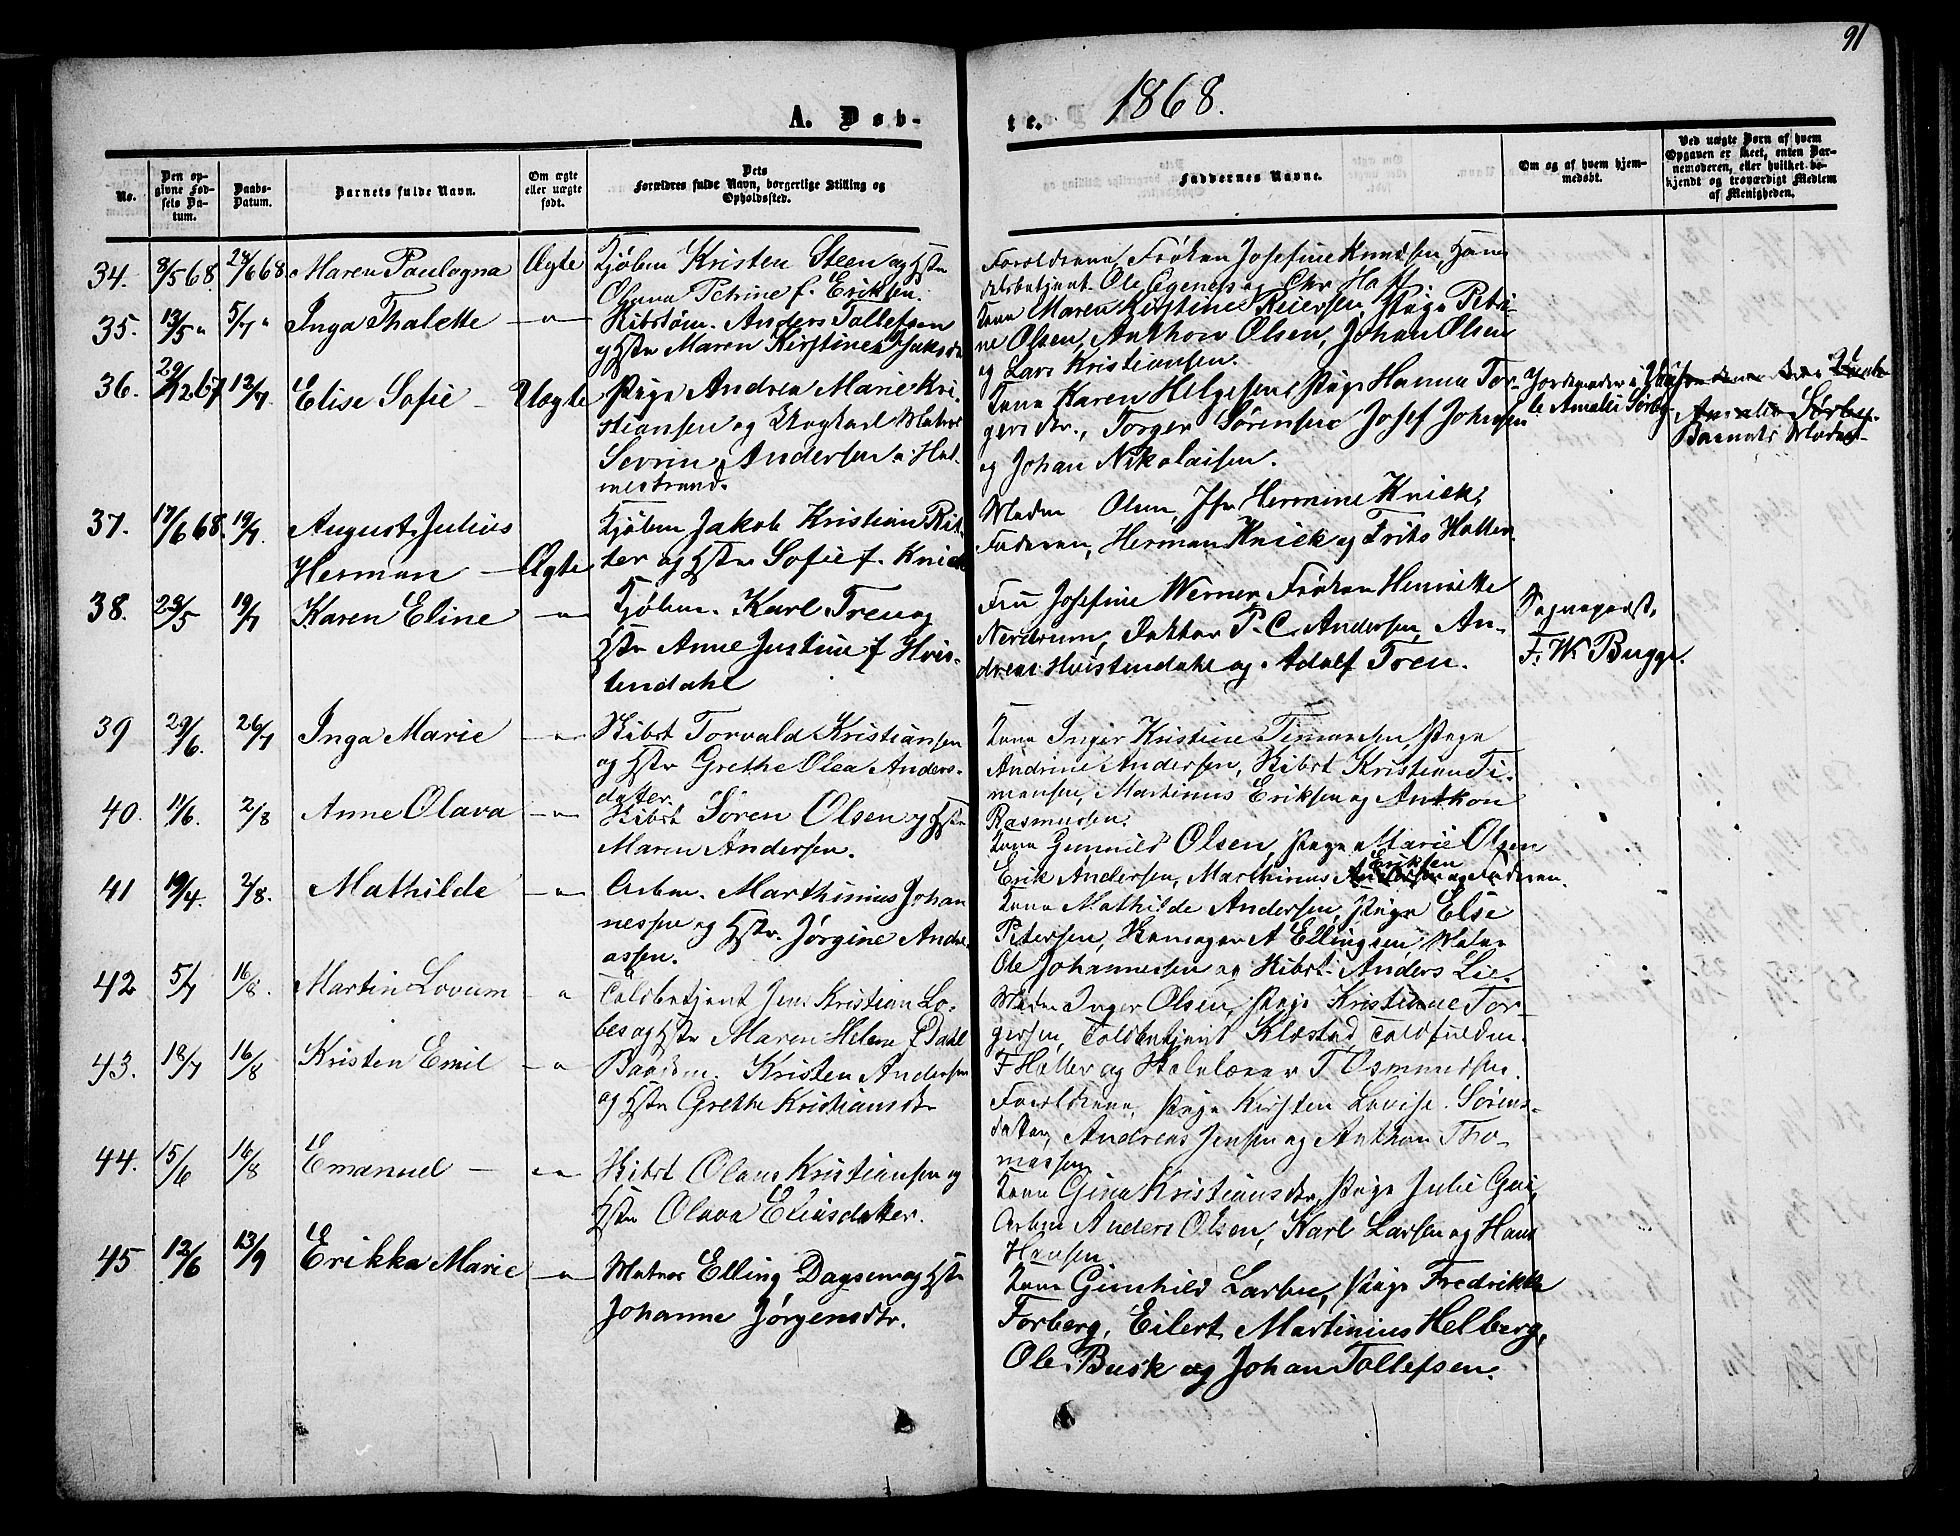 91
A. Døb-
te. 1868.
No.
Den opgivne Fødsels Datum.
Daabs-Datum.
Barnets fulde Navn.
Om ægte eller uægte født.
Dets Forældres fulde Navn, borgerlige Stilling og Opholdssted.
Faddernes Navne.
Om og af hvem hjemmedøbt.
Ved uægte Børn af hvem Opgaven er skeet, enten Barnemoderen, eller hvilket bekjendt og troværdigt Medlem af Menigheden.
34. 8/5 68. 28/6 68. Maren Paulagna Ægte Kjøbm Kristen Steen og Hstr
Petrine f. Eriksen.
Forældrene, Frøken Josefine Knudsen, Han
delsbetjent Ole Egenæs og Chr Hoff
35. 13/5 " 5/7 " Inga Thalette — " — Skibstøm. Anders Tollefsen
og Hstr Maren Kirstine
Kone Maren Kirstine Reiersen, Pige Petri-
ne Olsen, Anthon Olsen, Johan Olsen
og Lars Kristiansen.
36. 29/12 67 12/7 Elise Sofie — Uægte Pige Andrea Marie Kri-
stiansen og Ungkarl Matros
Sevrin Andersen, Hol-
mestrand.
Kone Karen Helgesen, Pige Hanna Tor-
gersdtr., Torger Sørensen, Josef Johnsen
og Johan Nikolaisen.
Jordemoder
Amalie Sørby
Amalie Sørby.
Barnets Moder
37. 17/6 68. 19/7. August Julius
Herman — Ægte
Kjøbm Jakob Kristian Rit-
ter og Hstr Sofie f. Knick
Madm Olsen, Jfr Hermine Knick,
Faderen, Herman Knick og Frits Holter.
38. 29/5 19/7 Karen Eline — " — Kjøbm. Karl Tren og
Hstr Anne Justine f Hvis-
tendahl
Fru Josefine Werner, Frøken Henriette
Nerdrum, Doktor P. C. Andersen, An-
dreas Hvistendahl og Adolf Tren.
Sogneprest,
F. W. Bugge.
39 29/6. 26/7 Inga Marie — " — Skibst Torvald Kristiansen
og Hstr Grethe Olea Anders-
dater.
Kone Inger Kristine Timansen, Pige
Andrine Andersen, Skibst Kristian Ti-
mansen, Martinus Eriksen og Anthon
Rasmussen.
40. 11/6. 2/8 Anne Olava — " — Skibst Søren Olsen og Hstr
Maren Andersen.
Kone Gunnild Olsen, Pige Marie Olsen
Erik Andersen, Marthinus Eriksen og Faderen.
41 19/4. 2/8. Mathilde — " — Arbm. Marthinius Johan
nessen og Hstr. Jørgine Andre-
assen.
Kone Mathilde Andersen, Pige Else
Petersen, A Ellingsen, Matros
Ole Johannessen og Skibst Anders Lie.
42 5/7 16/8. Martin Lovum — " Toldbetjent Jens Kristian Lo-
bes og Hstr Maren Helene f Dahl
Madm Inger Olsen, Pige Kristiane Tor-
gersen, Toldbetjent Klæstad, Toldfuldm.
F Holter og Skolelærer T Osmundsen.
43. 18/7 16/8 Kristen Emil — " Baadsm. Kristen Andersen
og Hstr Grethe Kristiansdtr
Forældrene, Pige Kirsten Lovise Sørens-
dater, Andreas Jensen og Anthon Tho-
massen
44. 15/6 16/8 Emanuel — — " — Skibst Olaus Kristiansen og
Hstr Olava Eliasdatter.
Kone Gina Kristiansdtr, Pige Julie
Arbm Anders Olsen, Karl Larsen og Hans
Hansen
45 12/6 13/9 Erikka Marie — " Matros Elling Dagsen og Hstr
Johanne Jørgensdtr.
Kone Gunhild Larsen, Pige Fredrikke
Forberg, Eilert Martinius Helberg,
Ole Busk og Johan Tollefsen.